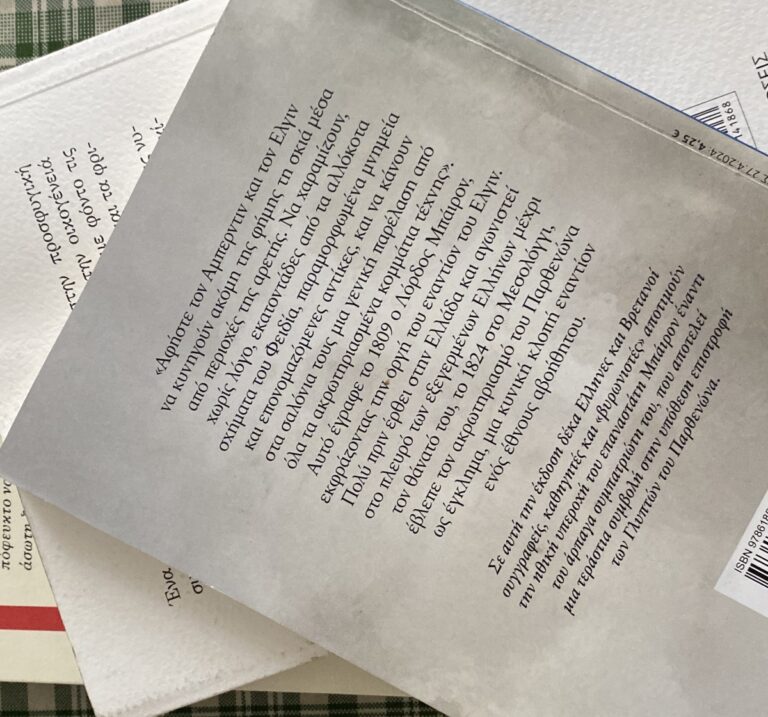 «Αφήστε τον Αμπερντιν και τον Ελγιν
να κυνηγούν ακόμη της φήμης τη σκιά μέσα
από περιοχές της αρετής. Να χαραμίζουν,
χωρίς λόγο, εκατοντάδες από τα αλλόκοτα
σχήματα του Φειδία, παραμορφωμένα μνημεία
και επονομαζόμενες αντίκες, και να κάνουν
στα σαλόνια τους μια γενική παρέλαση από
όλα τα ακρωτηριασμένα κομμάτια τέχνης».
Αυτό έγραφε το 1809 ο Λόρδος Μπάιρον,
εκφράζοντας την οργή του εναντίον του Ελγιν.
Πολύ πριν έρθει στην Ελλάδα και αγωνιστεί
στο πλευρό των εξεγερμένων Ελλήνων μέχρι
τον θάνατό του, το 1824 στο Μεσολόγγι,
έβλεπε τον ακρωτηριασμό του Παρθενώνα
ως έγκλημα, μια κυνική κλοπή εναντίον
ενός έθνους αβοήθητου.
Σε αυτή την έκδοση δέκα Ελληνες και Βρετανοί
συγγραφείς, καθηγητές και «βυρωνιστές» αποτιμούν
την ηθική υπεροχή του επαναστάτη Μπάιρον έναντι
του άρπαγα συμπατριώτη του, που αποτελεί
μια τεράστια συμβολή στην υπόθεση επιστροφή
των Γλυπτών του Παρθενώνα.
27.4.2024: 4,25 €
41868
ISBN 978618
στην προσφυγική
στην οικογένειά
με φόντο τις
και τα φρι-
Ένα
πόφευκτο να